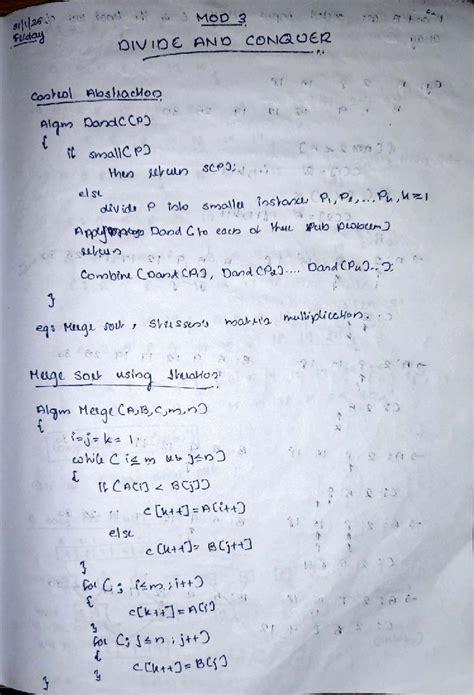 31/1/25
MOD 3
Friday
DIVIDE AND CONQUER
Control Abstraction
Algm DandC(P)
{
if small(P)
then return S(P);
else
divide P into smaller instances P1, P2, ... Pk, k≥1
Apply DandC to each of these sub problem)
return
Combine (DandC(P1), DandC(P2).... DandC(Pk)..);
}
eg: Merge sort, Strassen's matrix multiplication.
Merge Sort using Iteration:
Algm Merge (A,B,C,m,n)
{
i=j=k=1;
while (i≤m && j≤n)
{
if (A[i] < B[j])
c[k++]=A[i++]
else
c[k++]= B[j++]
}
for (; i≤m; i++)
{
c[k++]=A[i]
}
for (; j≤n; j++)
{
c[k++]=B[j]
}
}